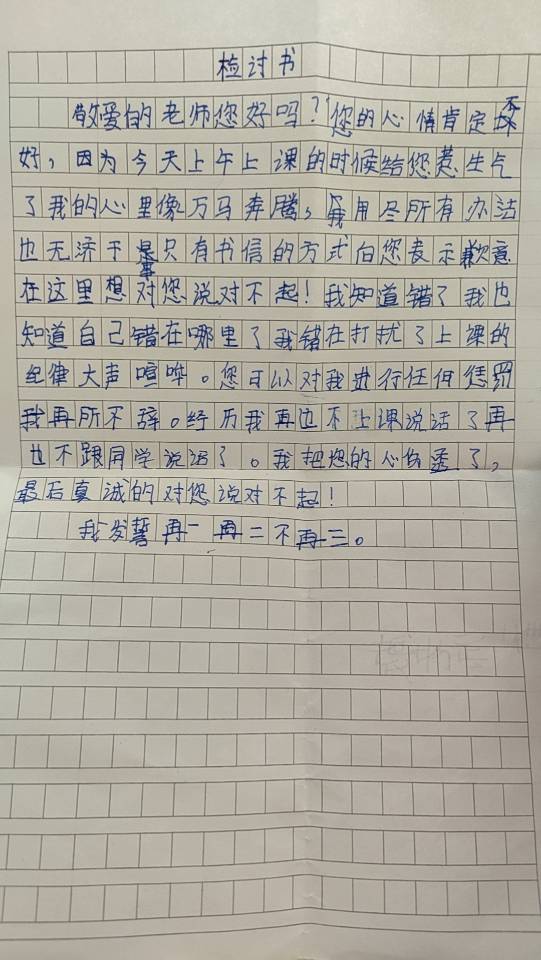 检讨书
敬爱的老师您好吗？您的心情肯定不
好，因为今天上午上课的时候给您惹生气
了我的心里像万马奔腾，我用尽所有办法
也无济于事只有书信的方式向您表示歉意
在这里想对您说对不起！我知道错了我也
知道自己错在哪里了我错在打扰了上课的
纪律大声喧哗。您可以对我进行任何惩罚
我再所不辞。经历我再也不上课说话了再
也不跟同学说话了。我把您的心伤透了，
最后真诚的对您说对不起！
我发誓再一再二不再三。